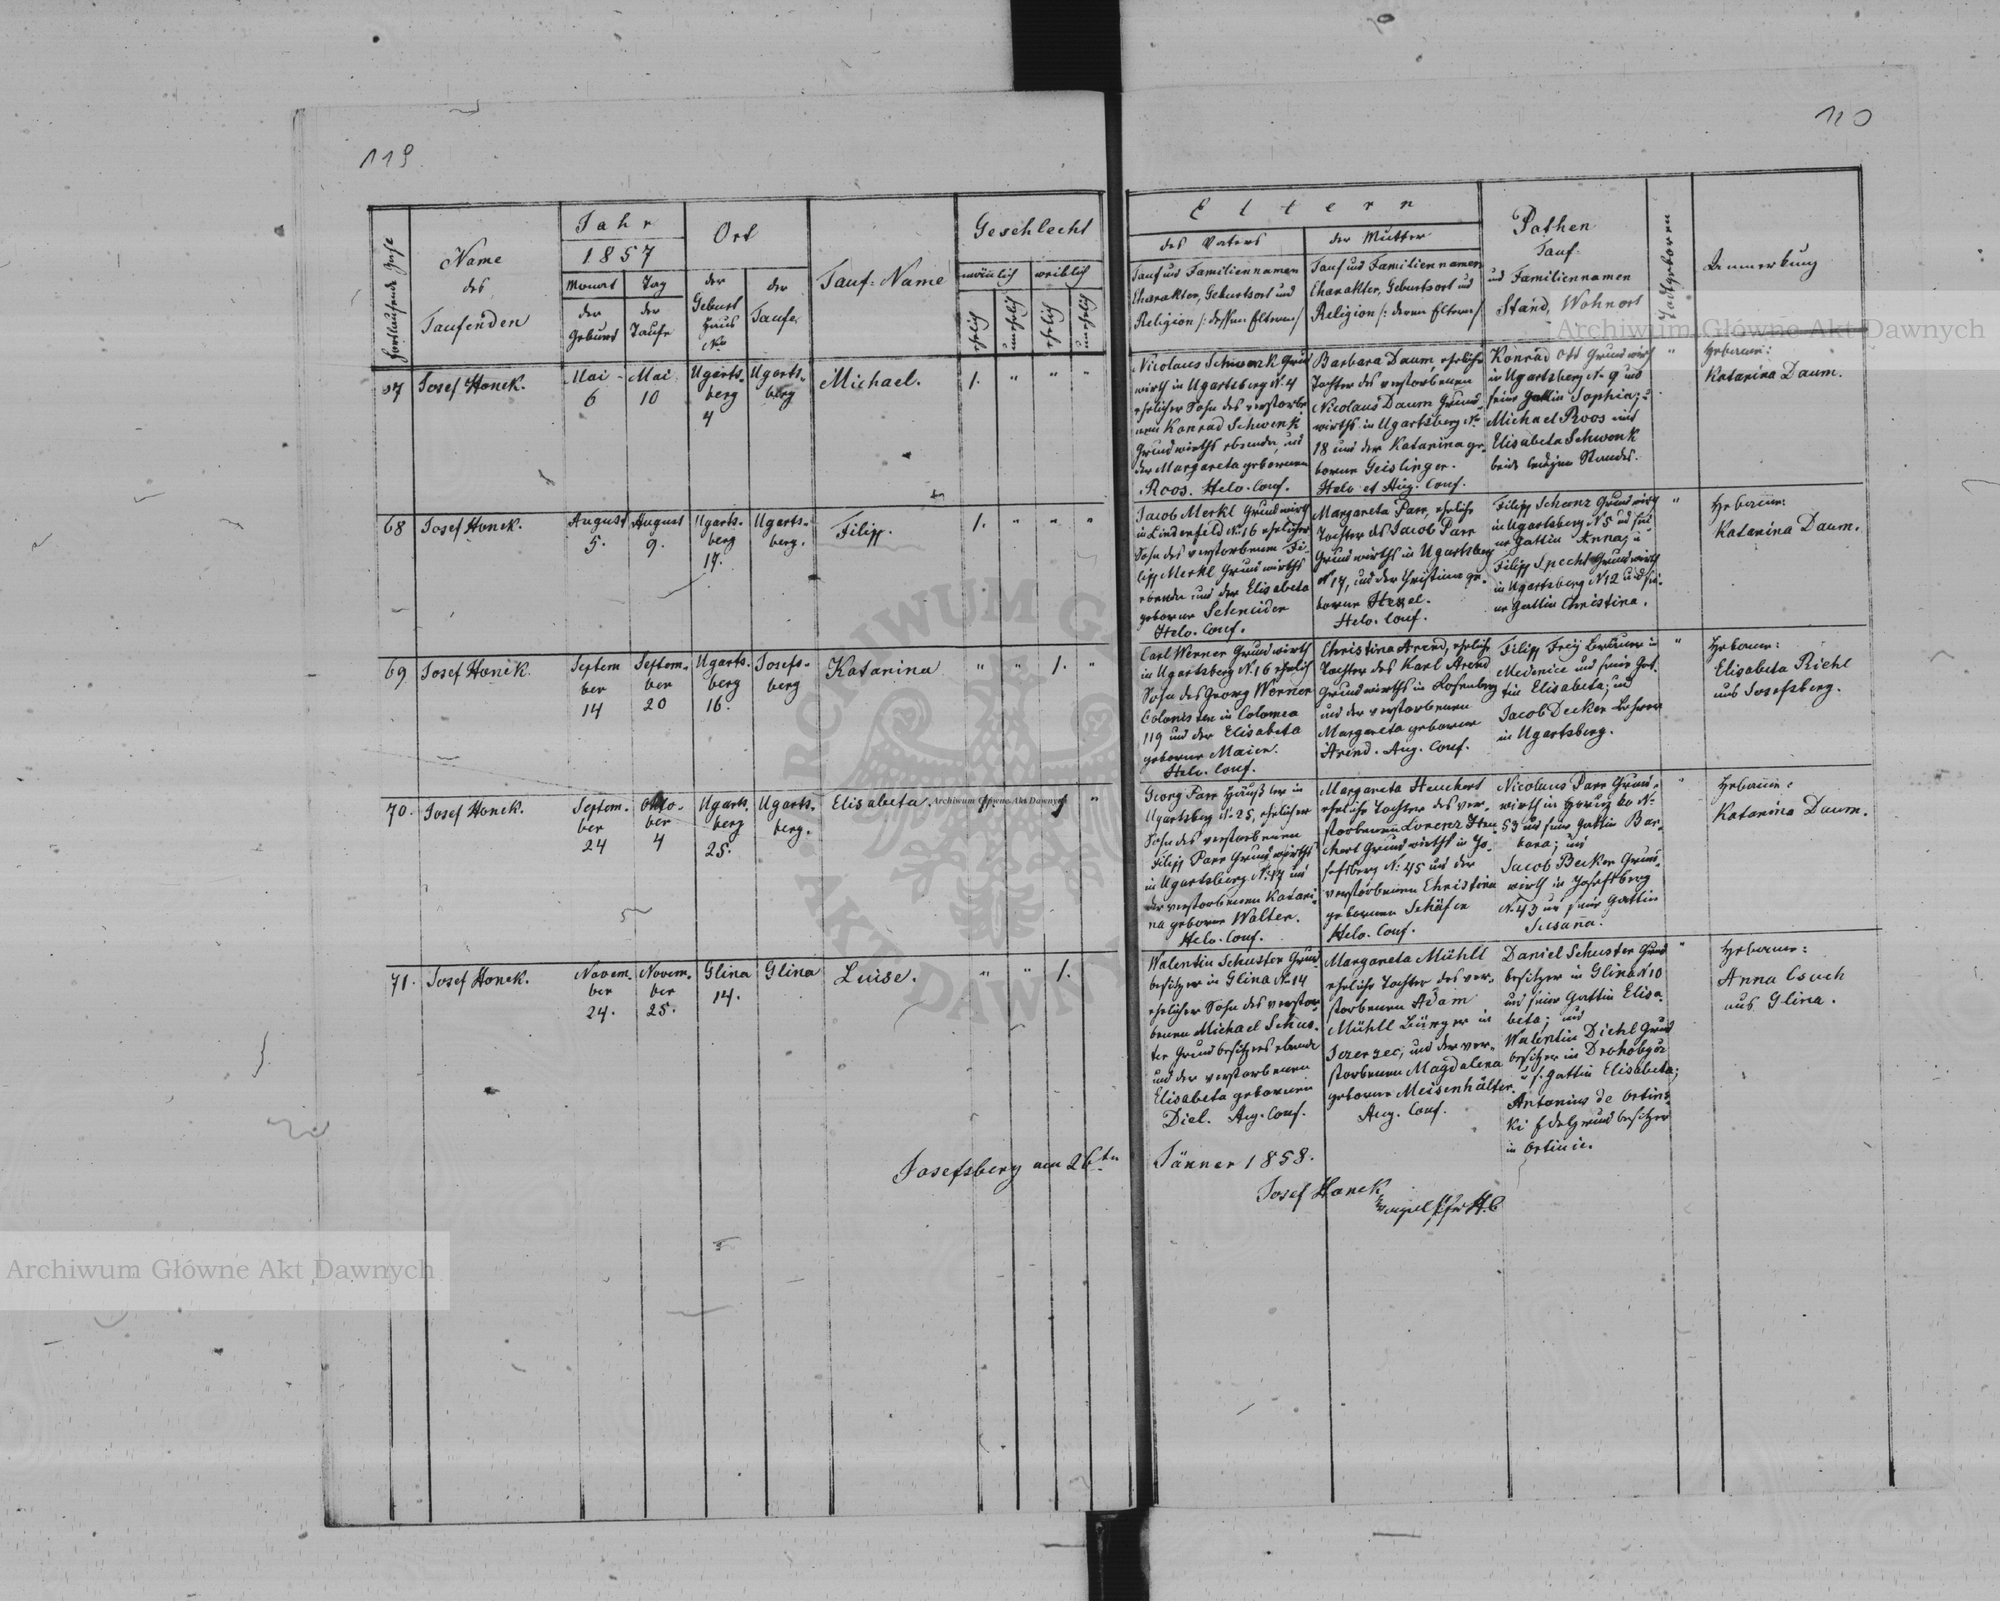 119
110
Fortlaufende Zahl
Name
des
Taufenden
Jahr
1857
Monat
der
Geburt
Tag
der
Taufe
Ort
der
Geburt
Haus
Nro
der
Taufe
Tauf-Name
Geschlecht
männlich
weiblich
ehelich
unehelich
ehelich
unehelich
Eltern
des Vaters
Tauf und Familiennamen
Charakter, Geburtsort und
Religion /: dessen Eltern/
der Mutter
Tauf und Familiennamen
Charakter, Geburtsort und
Religion /: deren Eltern/
Pathen
Tauf-
und Familiennamen
Stand, Wohnort
Todtgeboren
Anmerkung
67
Josef Honek.
Mai
6
Mai
10
Ugarts-
berg
4
Ugarts-
berg
Michael.
1. " " "
Nicolaus Schwenk Grund
wirth in Ugartsberg N. 4
ehelicher Sohn des verstorbe
nen Konrad Schwenk
Grundwirths ebenda, und
der Margareta gebornen
Roos. Helv. Conf.
Barbara Daum, eheliche
Tochter des verstorbenen
Nicolaus Daum Grund-
wirths in Ugartsberg No
18 und der Katarina ge-
borne Geislinger.
Helv et Aug. Conf.
Konrad Ott Grundwirth
in Ugartsberg N. 9 und
seine Gattin Sophia;
Michael Roos und
Elisabeta Schwenk
beide ledigen Standes.
"
Hebame:
Katarina Daum.
68
Josef Honek.
August
5.
August
9.
Ugarts-
berg
17.
Ugarts-
berg.
Filipp.
1. " " "
Jacob Merkl Grundwirth
in Lindenfeld No 16 ehelicher
Sohn des verstorbenen Fi-
lipp Merkl Grundwirths
ebenda und der Elisabeta
geborne Schneider
Helv. Conf.
Margareta Parr, eheliche
Tochter des Jacob Parr
Grundwirths in Ugartsberg
No 17, und der Christina ge-
borne Hexel.
Helv. Conf.
Filipp Schanz Grundwirth
in Ugartsberg N 5 und sei-
ne Gattin Anna; u
Filipp Specht Grundwirth
in Ugartsberg N 12 und sei-
ne Gattin Christina.
"
Hebame:
Katarina Daum.
69
Josef Honek.
Septem
ber
14
Septem-
ber
20
Ugarts-
berg
16.
Josefs-
berg
Katarina
" " 1. "
Carl Werner Grundwirth
in Ugartsberg N. 16 ehelich
Sohn des Georg Werner
Colonisten in Colomea
119 und der Elisabeta
geborne Maier.
Helv. Conf.
Christina Arend, eheliche
Tochter des Karl Arend
Grundwirths in Rosenberg
und der verstorbenen
Margareta geborne
Arend. Aug. Conf.
Filipp Frey Bräuer in
Medenice und seine Gat-
tin Elisabeta; und
Jacob Decker Lehrer
in Ugartsberg.
"
Hebame:
Elisabeta Richl
aus Josefsberg.
70.
Josef Honek.
Septem-
ber
24
Okto-
ber
4
Ugarts-
berg
25.
Ugarts-
berg.
Elisabeta
1 "
Georg Parr Häusler in
Ugartsberg No 25, ehelicher
Sohn des verstorbenen
Filipp Parr Grundwirths
in Ugartsberg No 17 und
der verstorbenen Katari-
na geborne Walter.
Helv. Conf.
Margareta Heuchert
eheliche Tochter des ver-
storbenen Lorenz Heu-
chert Grundwirths in Jo-
sefsberg No 45 und der
verstorbenen Christina
gebornen Schäfer
Helv. Conf.
Nicolaus Parr Grund-
wirth in Horutzko No
53 und seine Gattin Bar-
bara; und
Jacob Becker Grund-
wirth in Josefsberg
No 43 und seine Gattin
Susanna.
"
Hebame:
Katarina Daum.
71.
Josef Honek.
Novem-
ber
24.
Novem-
ber
25.
Glina
14.
Glina
Luise.
" " 1.
Walentin Schuster Grund
besitzer in Glina No 14
ehelicher Sohn des verstor-
benen Michael Schus-
ter Grundbesitzers ebenda
und der verstorbenen
Elisabeta gebornen
Diel. Aug. Conf.
Margareta Mühll
eheliche Tochter des ver-
storbenen Adam
Mühll Bürger in
und der ver-
storbenen Magdalena
geborne Meisenhälter.
Aug. Conf.
Daniel Schuster Grund
besitzer in Glina N 10
und seine Gattin Elisa-
beta; und
Walentin Diehl Grund
besitzer in Drohobycz
u s. Gattin Elisabeta;
Antonius de Ortins-
ki Edelgrundbesitzer
in Ortinie.
"
Hebame:
Anna
aus Glina.
Josefsberg am 26ten Jänner 1858.
Josef Honek
H.C.
Archiwum Główne Akt Dawnych
Archiwum Główne Akt Dawnych
Archiwum Główne Akt Dawnych